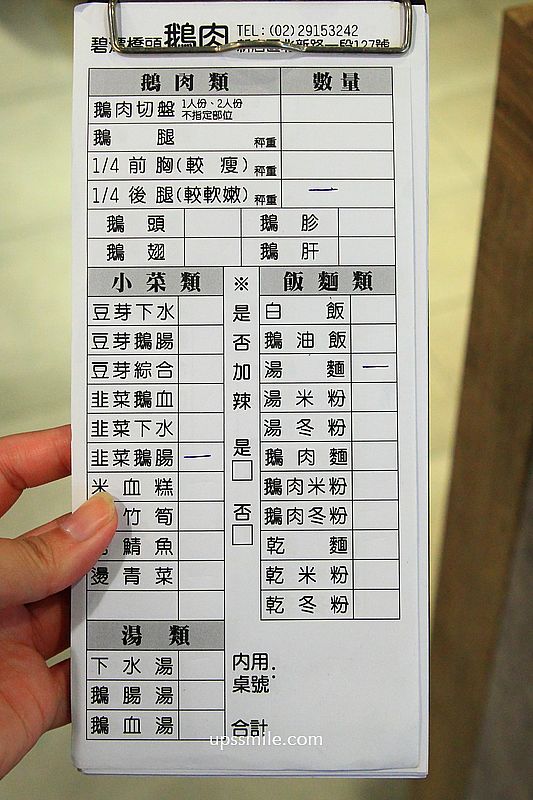 碧潭橋頭 鵝肉 TEL:(02)29153242
新店區北新路一段127號
鵝肉類 數量
鵝肉切盤 1人份、2人份 不指定部位
鵝腿 秤重
1/4前胸(較瘦) 秤重
1/4後腿(較軟嫩) 秤重 一
鵝頭 鵝胗
鵝翅 鵝肝
小菜類
豆芽下水
豆芽鵝腸
豆芽綜合
韭菜鵝血
韭菜下水
韭菜鵝腸 一
米血糕
竹筍
鯖魚
燙青菜
※是否加辣 是□ 否□
飯麵類
白飯
鵝油飯
湯麵 一
湯米粉
湯冬粉
鵝肉麵
鵝肉米粉
鵝肉冬粉
乾麵
乾米粉
乾冬粉
湯類
下水湯
鵝腸湯
鵝血湯
内用:
桌號
合計
upssmile.com